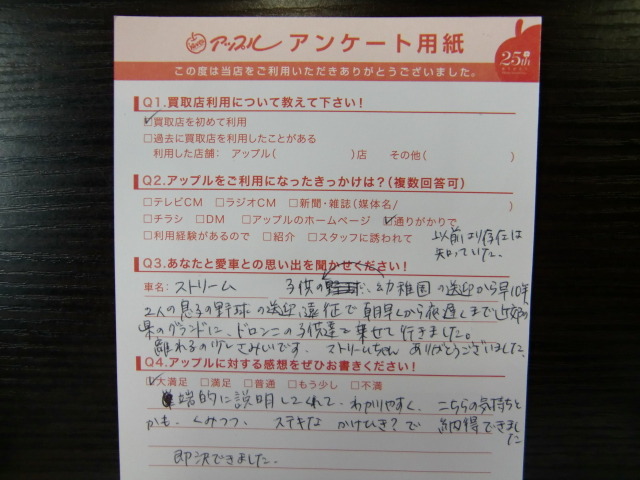 アップル アンケート用紙
25th
この度は当店をご利用いただきありがとうございました。
Q1.買取店利用について教えて下さい!
☑買取店を初めて利用
□過去に買取店を利用したことがある
利用した店舗: アップル( )店 その他( )
Q2.アップルをご利用になったきっかけは?(複数回答可)
□テレビCM □ラジオCM □新聞・雑誌(媒体名/ )
□チラシ □DM □アップルのホームページ ☑通りがかりで
□利用経験があるので □紹介 □スタッフに誘われて
以前より存在は
知っていた。
Q3.あなたと愛車との思い出を聞かせください!
車名: ストリーム 子供の 幼稚園の送迎から早10年
2人の息子の野球の送迎、遠征で朝早くから夜遅くまで近郊の
県のグランドに、ドロンコの子供達を乗せて行きました。
離れるの少しさみいです。 ストリームちゃん ありがとうございました。
Q4.アップルに対する感想をぜひお書きください!
☑大満足 □満足 □普通 □もう少し □不満
端的に説明してくれて、わかりやすく、こちらの気持ちと
かも、くみつつ、ステキな かけひき?で 納得できました
即決できました。